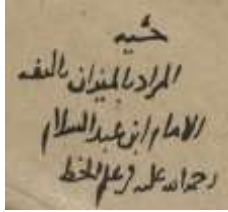 حشيه
المراد بالميزان بالف
الامام ابن عبد السلام
رحمه الله على وعلى الخط